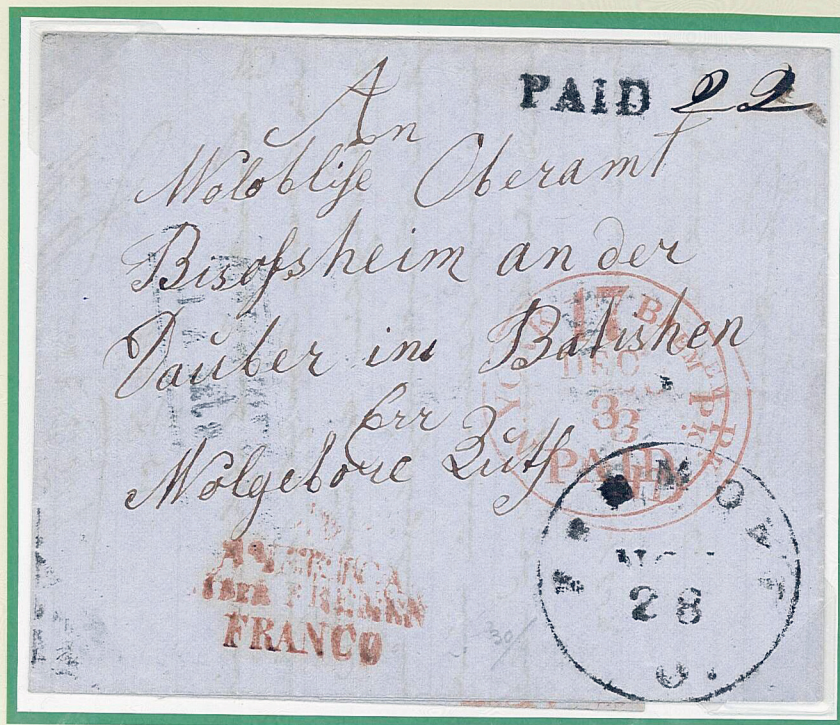 PAID 22
An
Wolobliſe Oberamt
Bisofsheim an der
Dauber im Batishen
Err
Wolgebore
17
DEC
33
PAID
AMERICA
ÜBER BREMEN
FRANCO
NOV
28
O.
30/